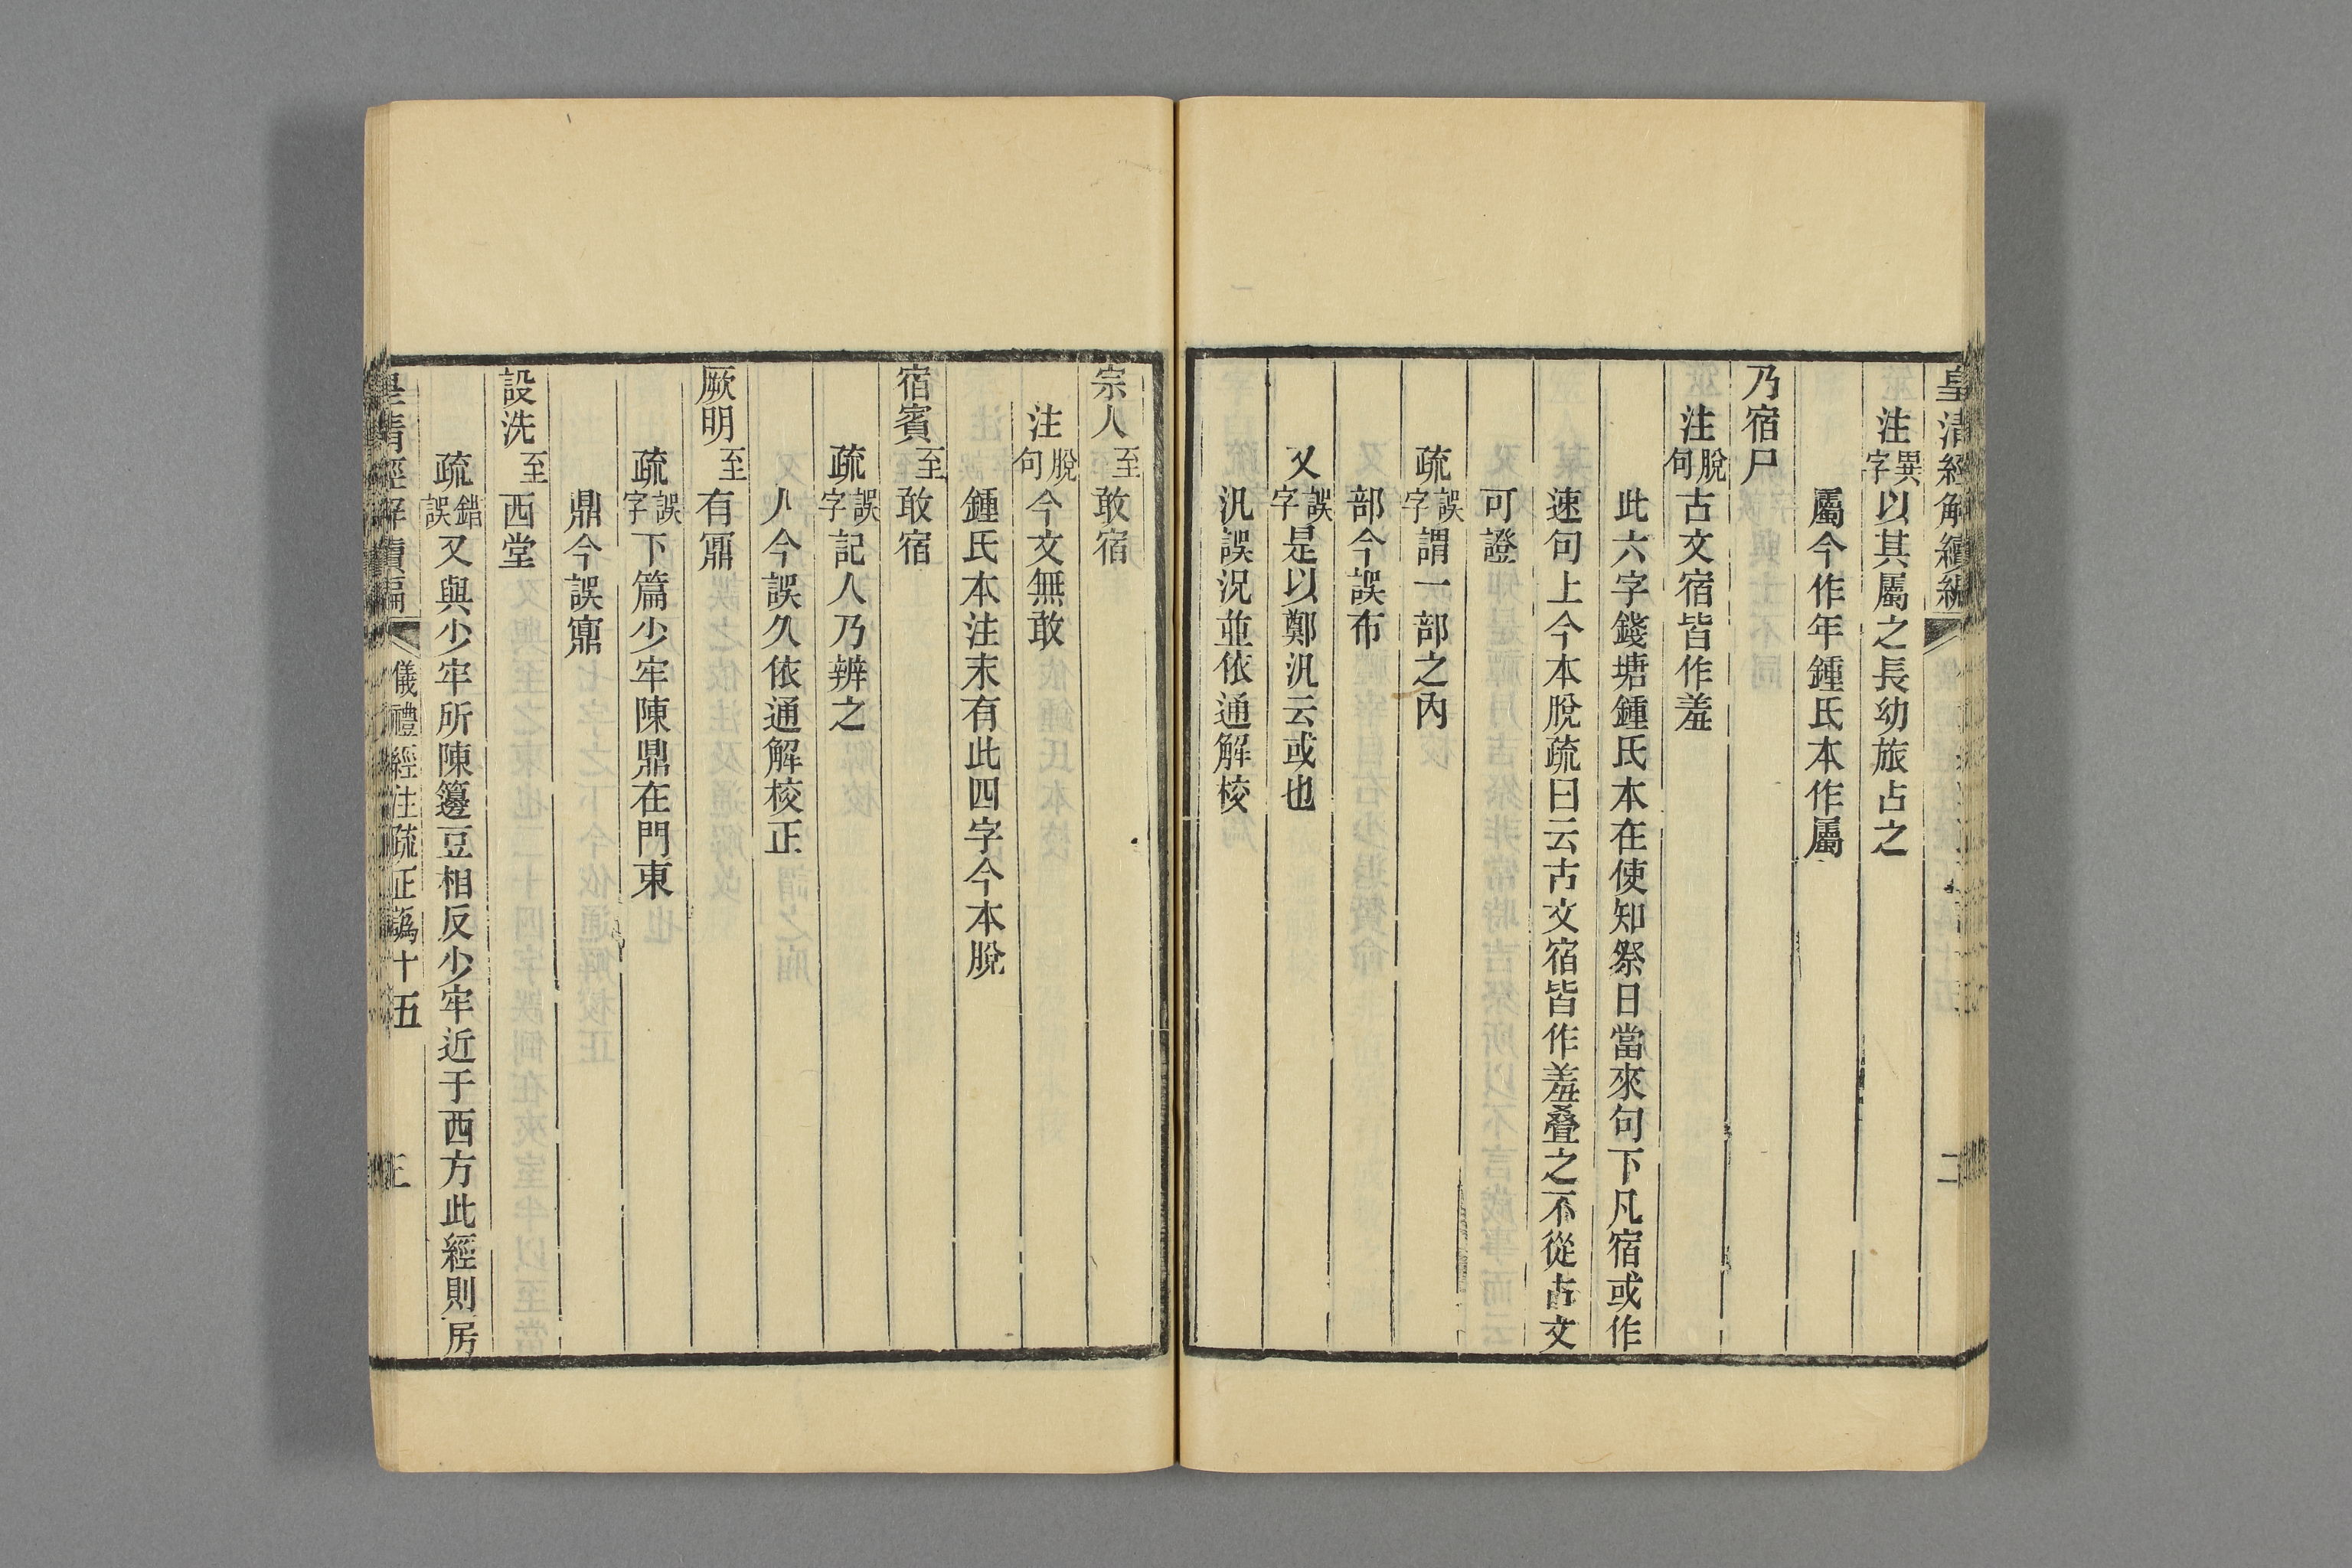 皇清經解續編
二
注異字以其屬之長幼旅占之
屬今作年鍾氏本作屬
乃宿尸
注脫句古文宿皆作羞
此六字錢塘鍾氏本在使知祭日當來句下凡宿或作
速句上今本脫疏曰云古文宿皆作羞叠之不從古文
可證
疏誤字謂一部之內
部今誤布
又誤字是以鄭汎云或也
汎誤況並依通解校
宗人至敢宿
注脫句今文無敢
鍾氏本注末有此四字今本脫
宿賓至敢宿
疏誤字記人乃辨之
人今誤久依通解校正
厥明至有鼏
疏誤字下篇少牢陳鼎在門東
鼎今誤鼏
設洗至西堂
疏錯誤又與少牢所陳籩豆相反少牢近于西方此經則房
皇清經解續編 儀禮經注疏正譌十五 三